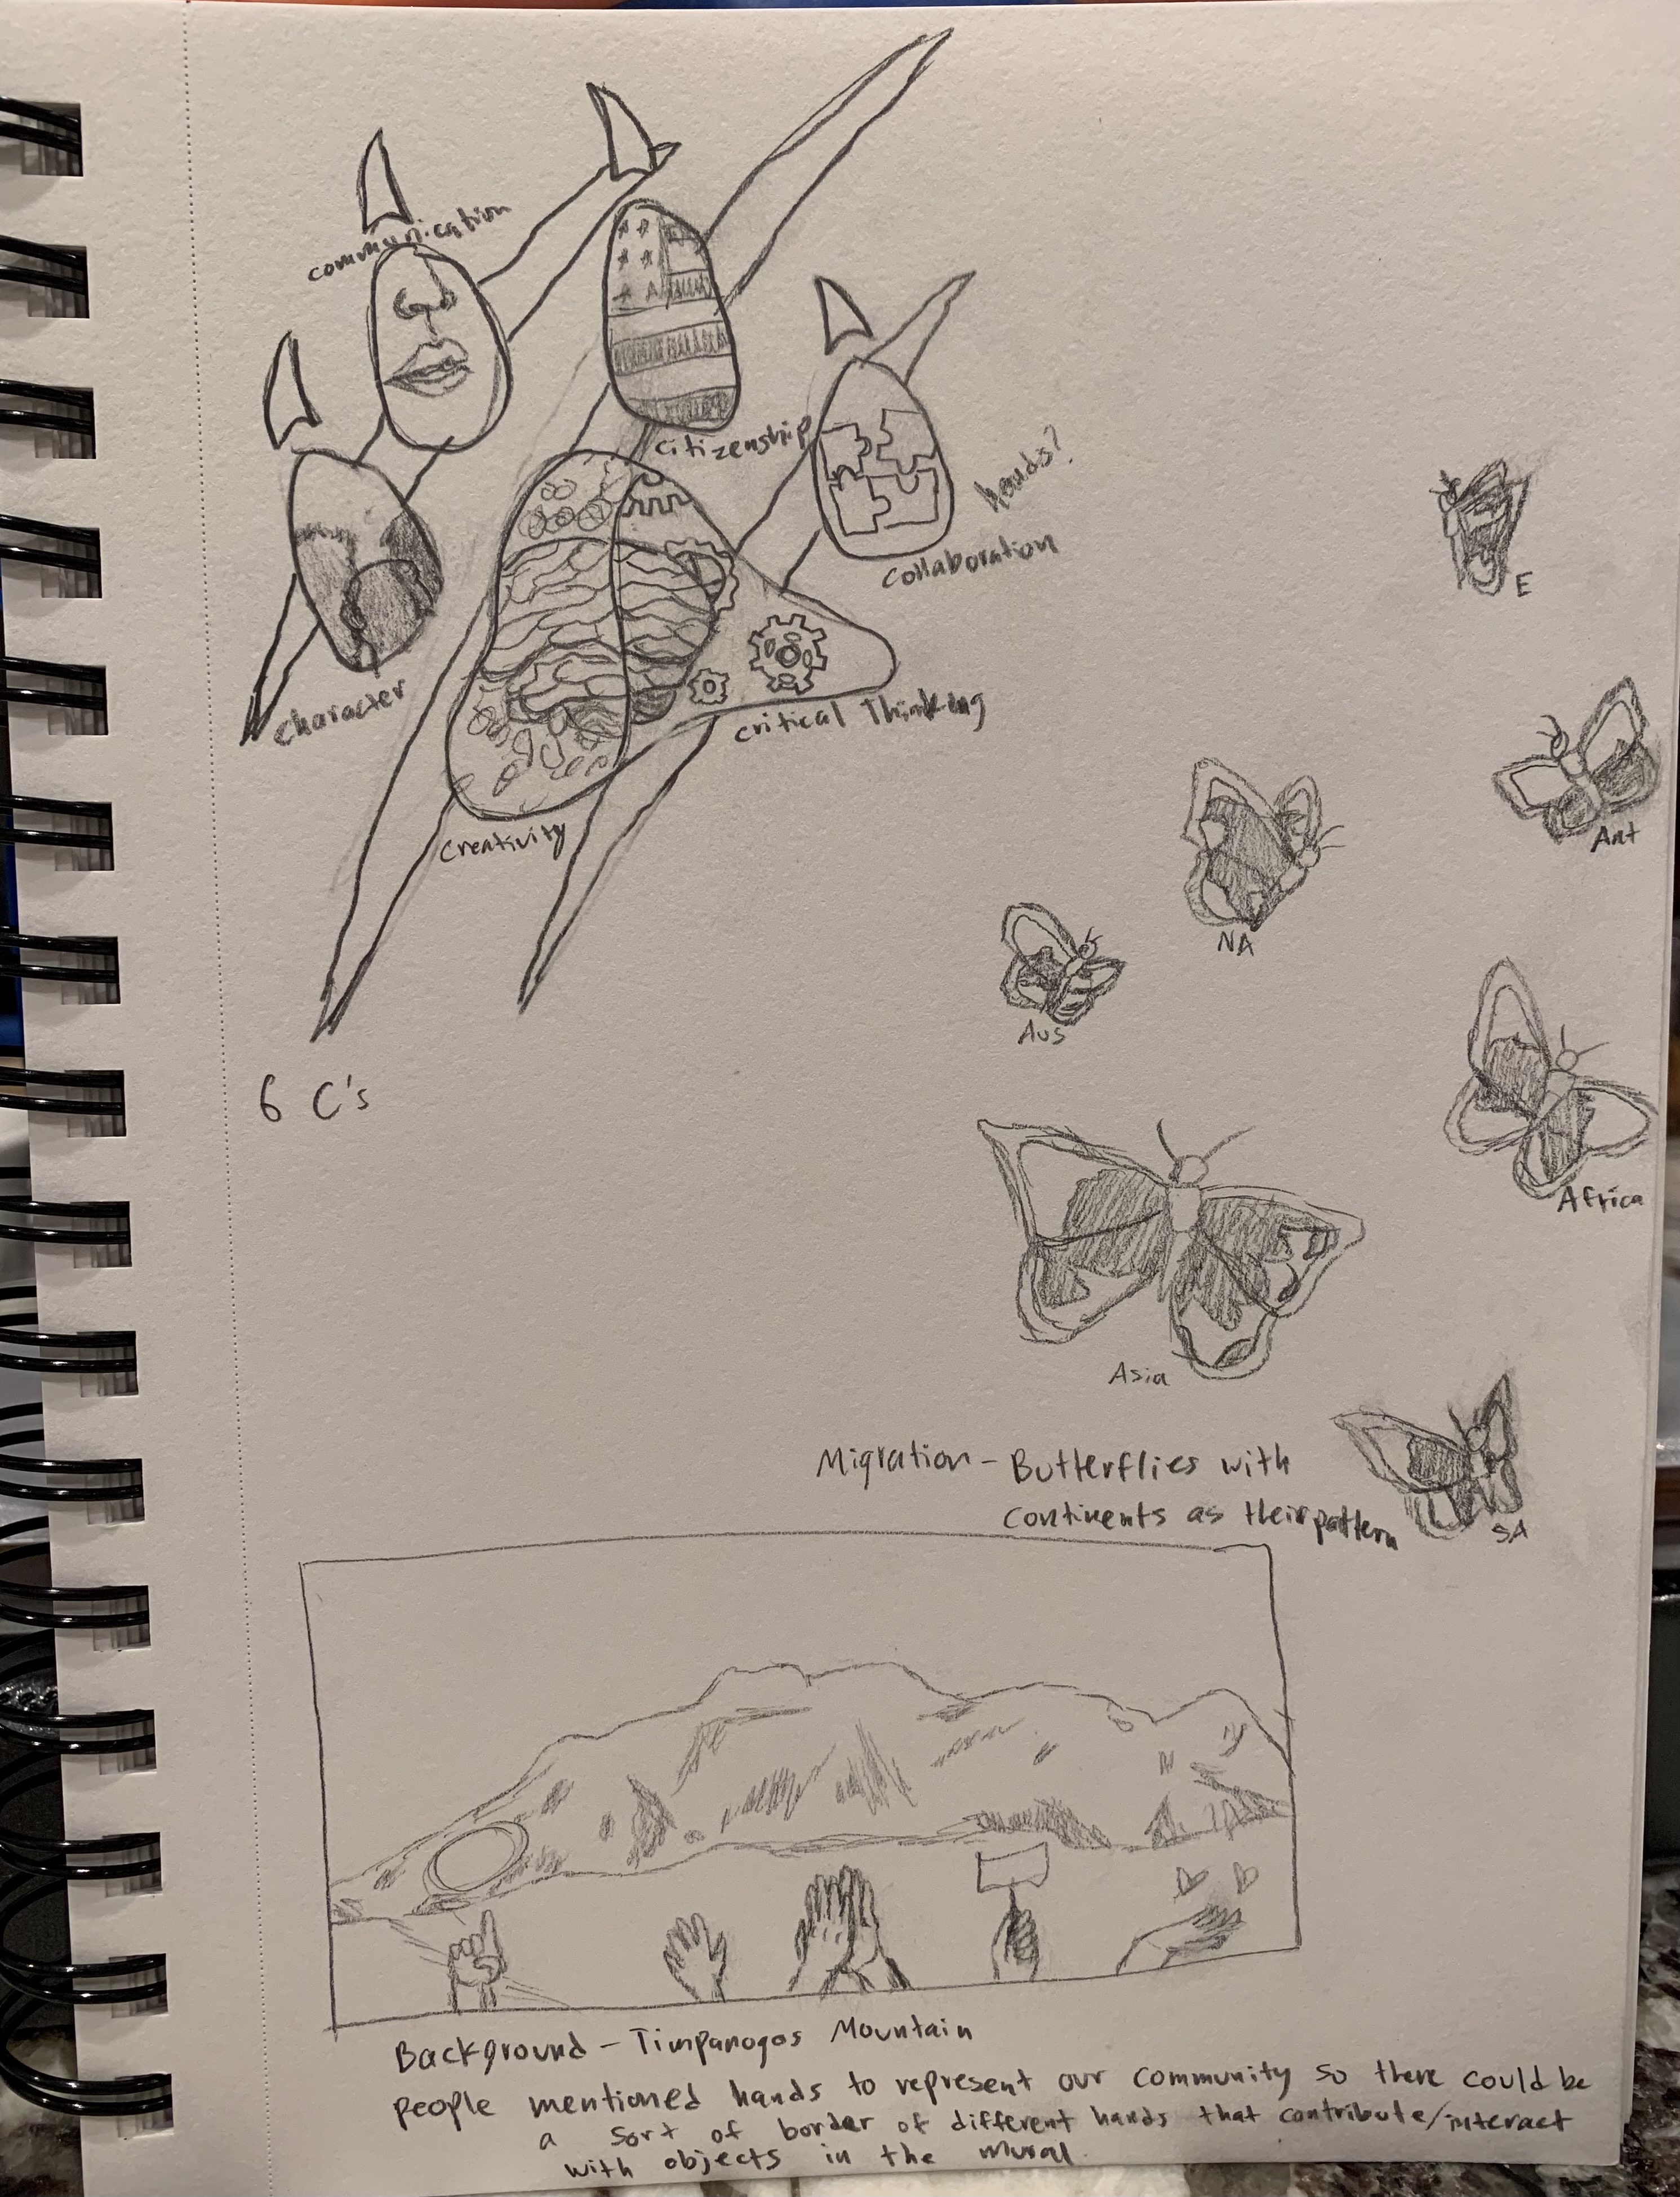 communication
citizenship
hands?
collaboration
character
critical Thinking
creativity
6 C's
E
Ant
NA
Aus
Africa
Asia
Migration - Butterflies with
continents as their pattern
SA
Background - Timpanogos Mountain
people mentioned hands to represent our community so there could be
a sort of border of different hands that contribute/interact
with objects in the mural.